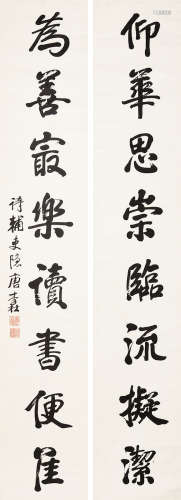 仰華思崇臨流擬潔
為善寂樂讀書便佳
詩輔吏隱唐